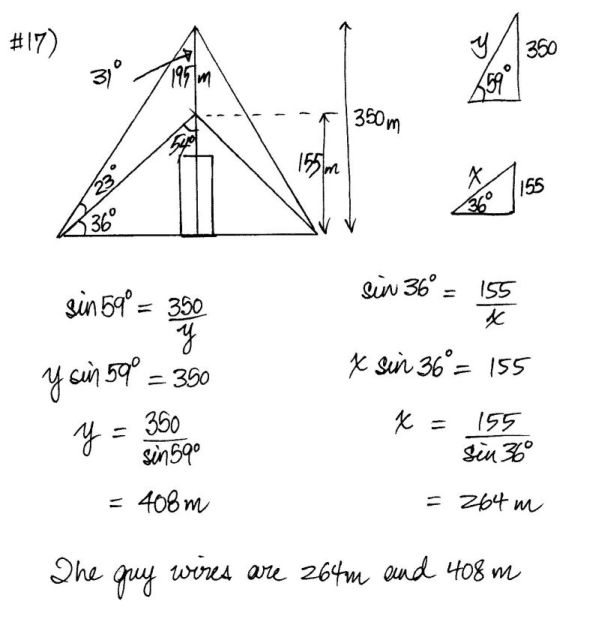 #17)
31°
195 m
54°
23°
36°
155 m
350 m
y
350
59°
x
155
36°
sin 59° = 350/y
y sin 59° = 350
y = 350/sin 59°
= 408 m
sin 36° = 155/x
x sin 36° = 155
x = 155/sin 36°
= 264 m
The guy wires are 264m and 408 m